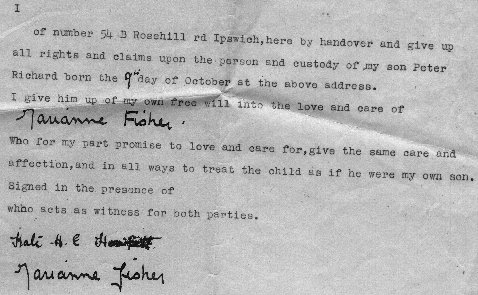 I
of number 54 B Rosehill rd Ipswich,here by handover and give up
all rights and claims upon the person and custody of my son Peter
Richard born the 9th day of October at the above address.
I give him up of my own free will into the love and care of
Marianne Fisher.
Who for my part promise to love and care for,give the same care and
affection,and in all ways to treat the child as if he were my own son.
Signed in the presence of
whho acts as witness for both parties.
H. E
Marianne Fisher